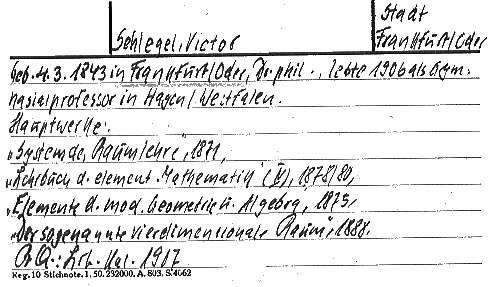 Schlegel, Victor
Stadt
Frankfurt/Oder
Geb. 4.3.1843 in Frankfurt/Oder, Dr. phil., lebte 1906 als Gym-
nasialprofessor in Hagen/Westfalen.
Hauptwerke:
„System de Raumlehre", 1871,
„Lehrbuch d. element. Mathematik" (IV), 1878/80,
„Elemente d. mod. Geometrie u. Algebra, 1875,
„Der sogenannte vierdimensionale Raum", 1888.
Lit. Kal. 1907
Reg. 10 Stichnote. 1. 50. 232000. A. 803. S. 4062